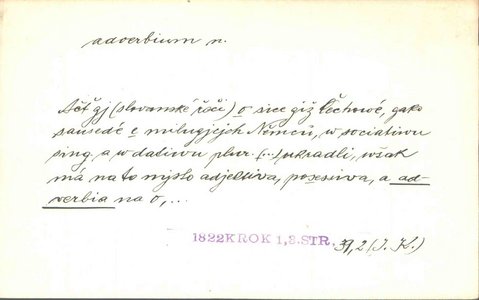 adverbium n.
Ačť gj (slovanské řeči) o sice giž Čechowé, gako
sausedé e milugjejch Němců, w sociatiwu
sing. a w dativu plur. (...) ukradli, wšak
má na to mjsto adjektiva, possesiva, a ad-
verbia na o, ...
1822 KROK 1, 2. STR. 37, 2 (J. K.)